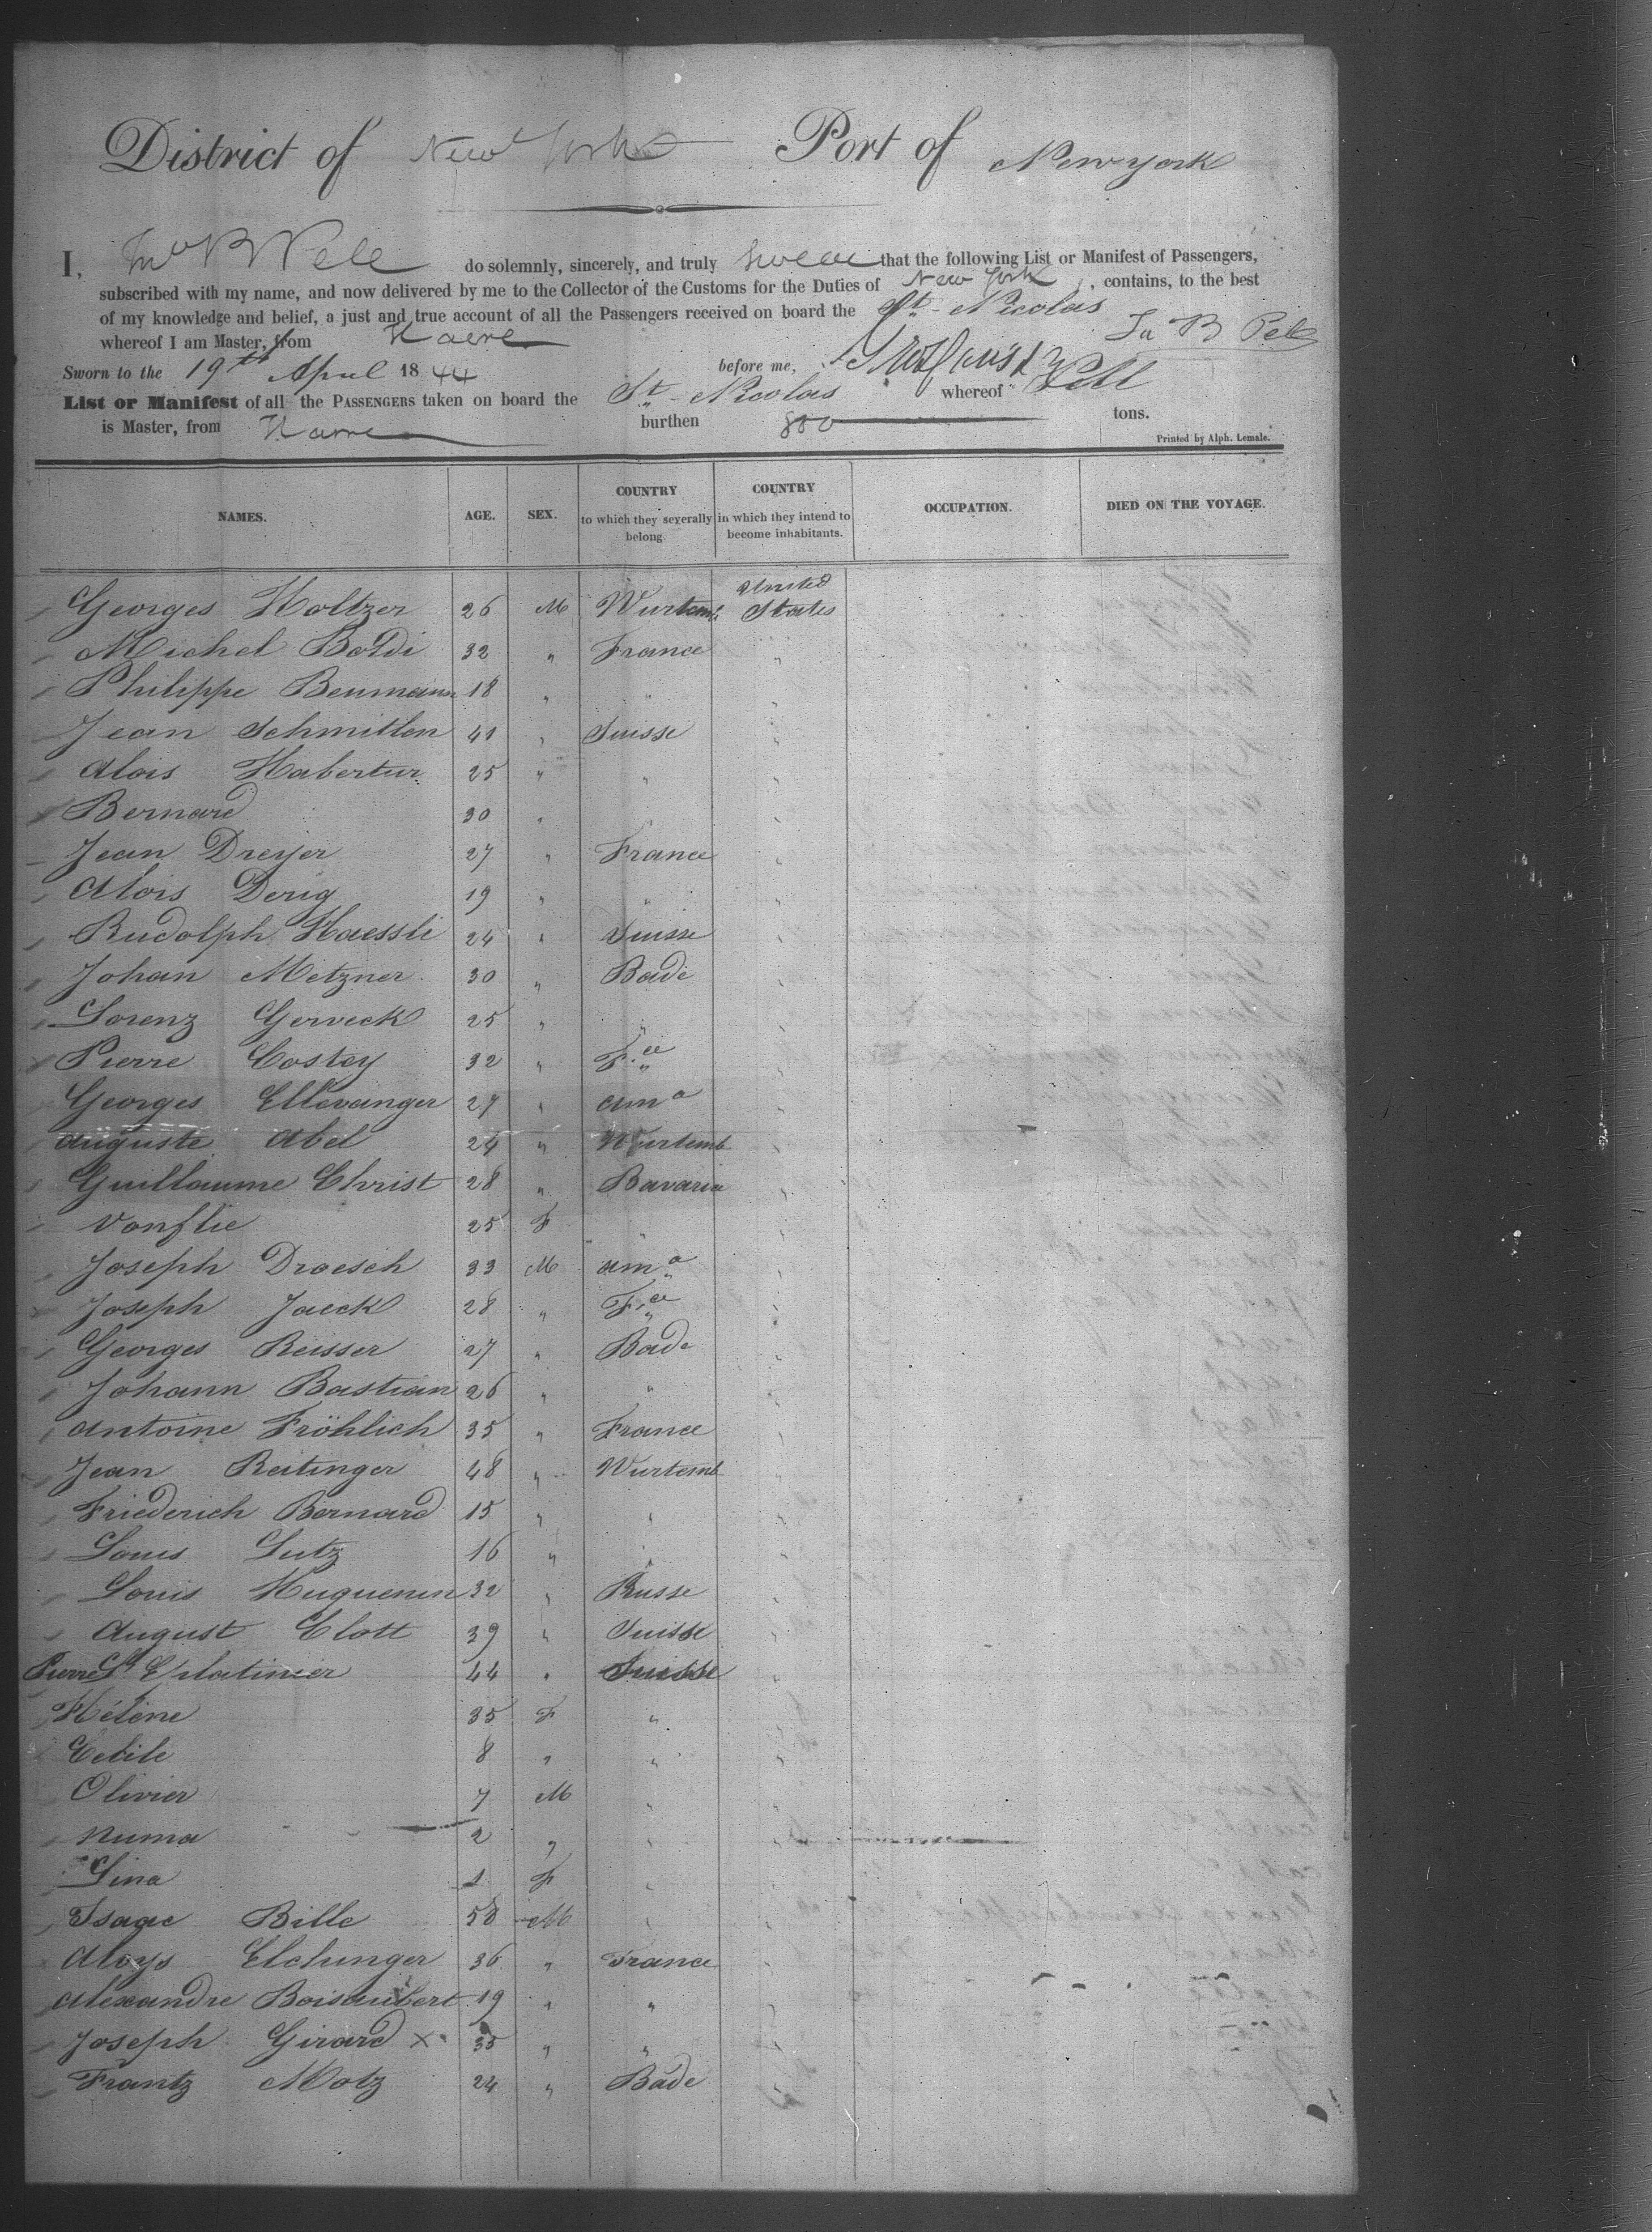 District of New York Port of New york
I, Jno B Pell do solemnly, sincerely, and truly swear that the following List or Manifest of Passengers,
subscribed with my name, and now delivered by me to the Collector of the Customs for the Duties of New York, contains, to the best
of my knowledge and belief, a just and true account of all the Passengers received on board the St. Nicolas
whereof I am Master, from Havre Jn B Pell
Sworn to the 19th April 1844 before me,
List or Manifest of all the PASSENGERS taken on board the St. Nicolas whereof Pell
is Master, from Havre burthen 800 tons.
Printed by Alph. Lemale.
NAMES. AGE. SEX. COUNTRY to which they severally belong. COUNTRY in which they intend to become inhabitants. OCCUPATION. DIED ON THE VOYAGE.
Georges Holtzer 26 M Wurtemb United States
Michel Boldi 32 " France "
Philippe Beumann 18 " " "
Jean Schmitlen 41 " Suisse "
Alois Habertur 25 " " "
Bernard 30 " "
Jean Dreyer 27 " France "
Alois Derig 19 " " "
Rudolph Haessli 24 " Suisse "
Johan Metzner 30 " Bade "
Lorenz Gerveck 25 " " "
Pierre Costey 32 " F.ce "
Georges Ellevanger 27 " ama "
Auguste Abel 24 " Wurtemb "
Guillaume Christ 28 " Bavaria "
Vonflie 25 F " "
Joseph Droesch 33 M ama "
Joseph Jaeck 28 " F.ce "
Georges Reisser 27 " Bade "
Johann Bastian 26 " " "
Antoine Fröhlich 35 " France "
Jean Reitinger 48 " Wurtemb "
Friederich Bernard 15 " " "
Louis Lutz 16 " " "
Louis Huguenin 32 " Russe "
August Clott 39 " Suisse "
Pierre Ls Eplatinier 44 " Suisse "
Hélène 35 F " "
Cecile 8 " " "
Olivier 7 M " "
Numa 2 " " "
Lina 1 F " "
Isaac Bille 58 M " "
Aloys Elchinger 36 " France "
Alexandre Boisaubert 19 " " "
Joseph Girard x 35 " " "
Frantz Motz 24 " Bade "